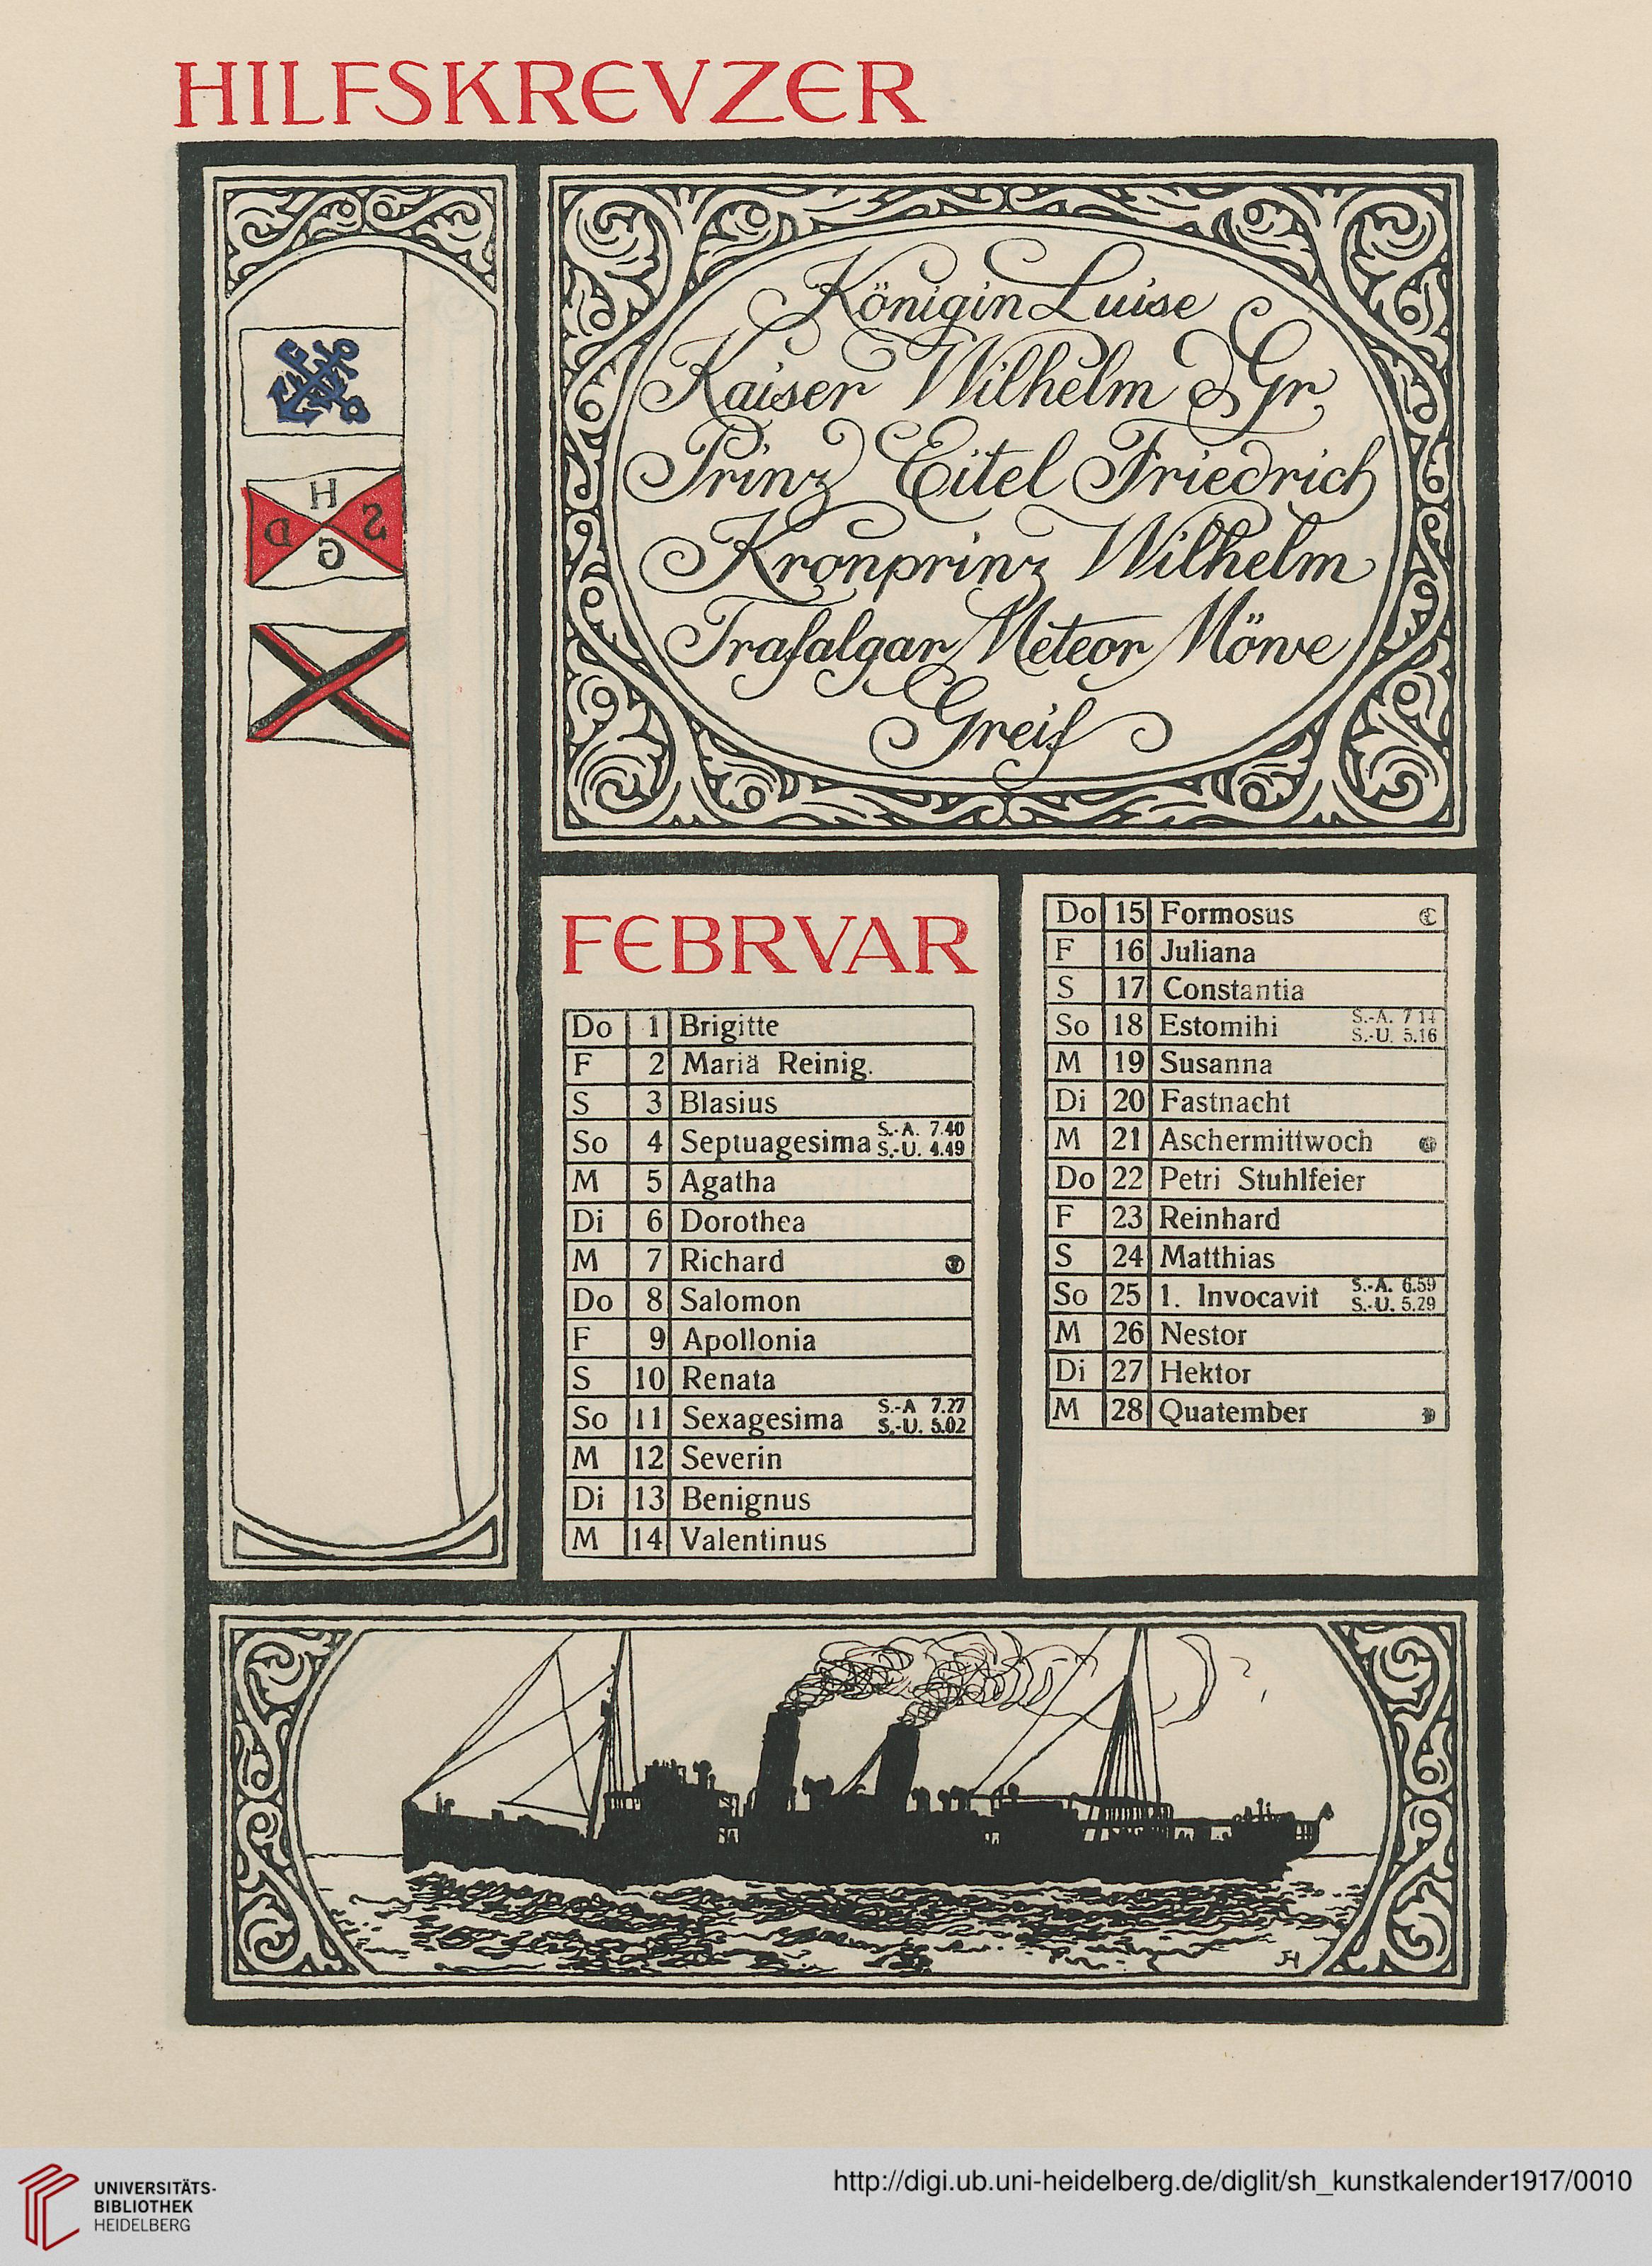 HILFSKREVZER
H
D S
G
Königin Luise
Kaiser Wilhelm d Gr.
Prinz Eitel Friedrich
Kronprinz Wilhelm
Trafalgar Meteor Möwe
Greif
FEBRVAR
Do 1 Brigitte
F 2 Mariä Reinig.
S 3 Blasius
So 4 Septuagesima S.-A. 7.40 S.-U. 4.49
M 5 Agatha
Di 6 Dorothea
M 7 Richard
Do 8 Salomon
F 9 Apollonia
S 10 Renata
So 11 Sexagesima S.-A 7.27 S.-U. 5.02
M 12 Severin
Di 13 Benignus
M 14 Valentinus
Do 15 Formosus
F 16 Juliana
S 17 Constantia
So 18 Estomihi S.-A. 7 14 S.-U. 5.16
M 19 Susanna
Di 20 Fastnacht
M 21 Aschermittwoch
Do 22 Petri Stuhlfeier
F 23 Reinhard
S 24 Matthias
So 25 1. Invocavit S.-A. 6.59 S.-U. 5.29
M 26 Nestor
Di 27 Hektor
M 28 Quatember
UNIVERSITÄTS-
BIBLIOTHEK
HEIDELBERG
http://digi.ub.uni-heidelberg.de/diglit/sh_kunstkalender1917/0010